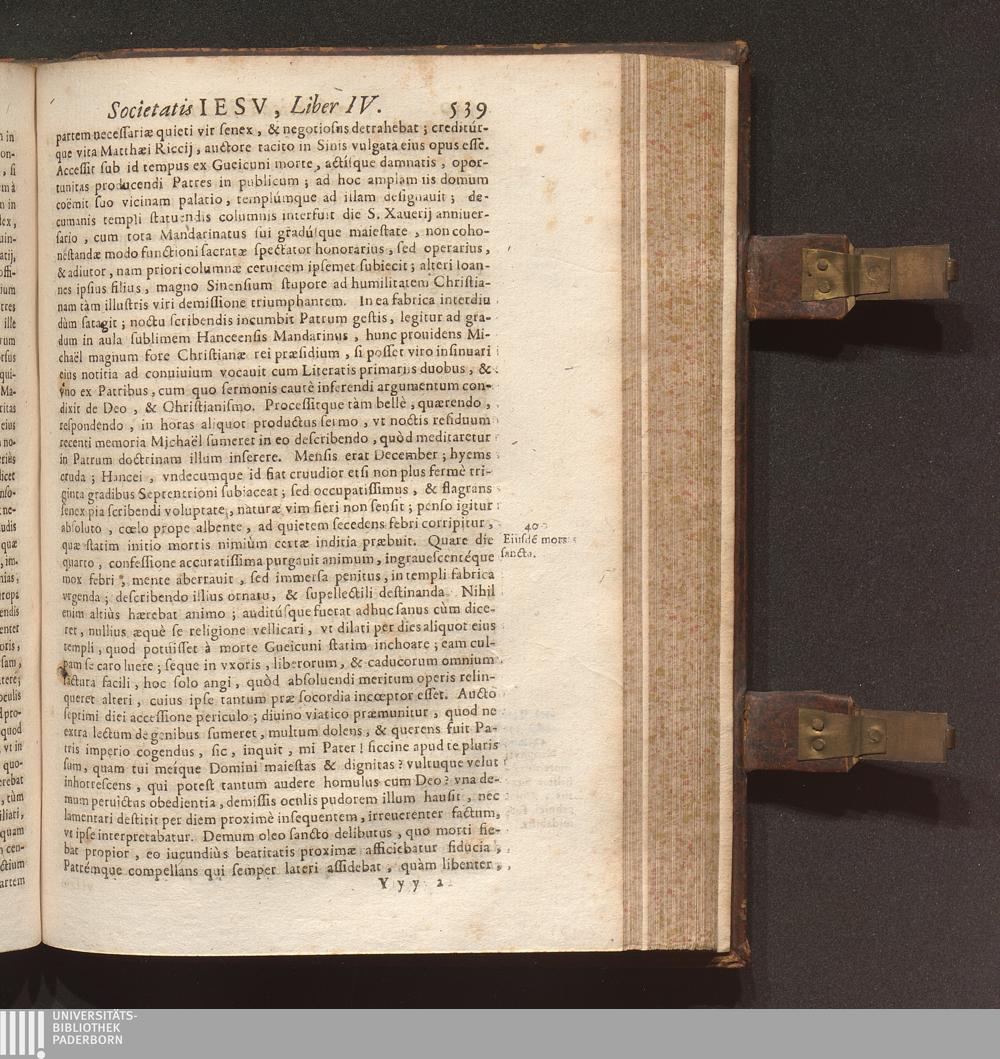 Societatis IESV, Liber IV. 539
partem necessariæ quieti vir senex, & negotiosus detrahebat; creditúr-
que vita Matthæi Riccij, auctore tacito in Sinis vulgata eius opus esse.
Accessit sub id tempus ex Gueicuni morte, actísque damnatis, opor-
tunitas producendi Patres in publicum; ad hoc amplam iis domum
coëmit suo vicinam palatio, templúmque ad illam designauit; de-
cumanis templi statuendis columnis interfuit die S. Xauerij anniuer-
sario, cum tota Mandarinatus sui gradúsque maiestate, non coho-
nestandæ modo functioni sacratæ spectator honorarius, sed operarius,
& adiutor, nam priori columnæ ceruicem ipsemet subiecit; alteri Ioan-
nes ipsius filius, magno Sinensium stupore ad humilitatem Christia-
nam tàm illustris viri demissione triumphantem. In ea fabrica interdiu
dùm satagit; noctu scribendis incumbit Patrum gestis, legitur ad gra-
dum in aula sublimem Hanceensis Mandarinus, hunc prouidens Mi-
chaël magnum fore Christianæ rei præsidium, si posset viro insinuari
eius notitia ad conuiuium vocauit cum Literatis primariis duobus, &
vno ex Patribus, cum quo sermonis cautè inferendi argumentum con-
dixit de Deo, & Christianismo. Processitque tàm bellè, quærendo,
respondendo, in horas aliquot productus sermo, vt noctis residuum
recenti memoria Michaël sumeret in eo describendo, quòd meditaretur
in Patrum doctrinam illum inserere. Mensis erat December; hyems
cruda; Hancei, vndecumque id fiat cruudior etsi non plus fermè tri-
ginta gradibus Septentrioni subiaceat; sed occupatissimus, & flagrans
senex pia scribendi voluptate, naturæ vim fieri non sensit; penso igitur
absoluto, cœlo prope albente, ad quietem secedens febri corripitur,
quæ statim initio mortis nimiùm certæ inditia præbuit. Quare die
quarto, confessione accuratissima purgauit animum, ingrauescentéque
mox febri, mente aberrauit, sed immersa penitus, in templi fabrica
vrgenda; describendo illius ornatu, & supellectili destinanda. Nihil
enim altiùs hærebat animo; auditúsque fuerat adhuc sanus cùm dice-
ret, nullius æquè se religione vellicari, vt dilati per dies aliquot eius
templi, quod potuisset à morte Gueicuni statim inchoare; eam cul-
pam se caro luere; seque in vxoris, liberorum, & caducorum omnium
iactura facili, hoc solo angi, quòd absoluendi meritum operis relin-
queret alteri, cuius ipse tantum præ socordia incœptor esset. Aucto
septimi diei accessione periculo; diuino viatico præmunitur, quod ne
extra lectum de genibus sumeret, multum dolens, & querens fuit Pa-
tris imperio cogendus, sic, inquit, mi Pater! siccine apud te pluris
sum, quam tui meíque Domini maiestas & dignitas? vultuque velut
inhorrescens, qui potest tantum audere homulus cum Deo? vna de-
mum peruictus obedientia, demissis oculis pudorem illum hausit, nec
lamentari destitit per diem proximè insequentem, irreuerenter factum,
vt ipse interpretabatur. Demum oleo sancto delibutus, quo morti fie-
bat propior, eo iucundiùs beatitatis proximæ afficiebatur fiducia,
Patrémque compellans qui semper lateri assidebat, quàm libenter,
Yyy 2
40.
Eiusdē mors
sancta.
UNIVERSITÄTS-
BIBLIOTHEK
PADERBORN